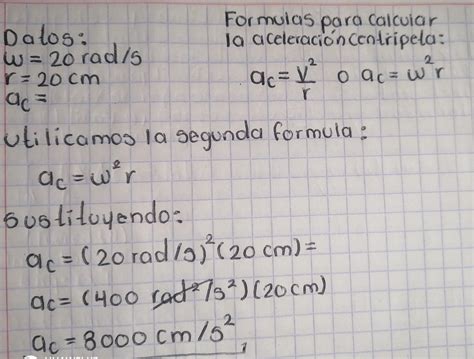 Datos:
w = 20 rad/s
r = 20 cm
ac =
Formulas para calcular
la aceleración centripeta:
ac = v²/r o ac = w²r
Utilicamos la segunda formula:
ac = w²r
Sustituyendo:
ac = (20 rad/s)²(20 cm) =
ac = (400 rad²/s²)(20cm)
ac = 8000 cm/s²,